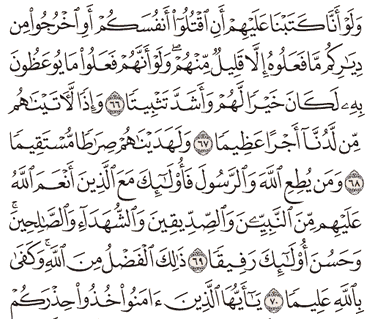 وَلَوْ أَنَّا كَتَبْنَا عَلَيْهِمْ أَنِ ٱقْتُلُوٓا۟ أَنفُسَكُمْ أَوِ ٱخْرُجُوا۟ مِن
دِيَٰرِكُم مَّا فَعَلُوهُ إِلَّا قَلِيلٌ مِّنْهُمْ ۖ وَلَوْ أَنَّهُمْ فَعَلُوا۟ مَا يُوعَظُونَ
بِهِۦ لَكَانَ خَيْرًا لَّهُمْ وَأَشَدَّ تَثْبِيتًا ٦٦ وَإِذًا لَّءَاتَيْنَٰهُم
مِّن لَّدُنَّآ أَجْرًا عَظِيمًا ٦٧ وَلَهَدَيْنَٰهُمْ صِرَٰطًا مُّسْتَقِيمًا
٦٨ وَمَن يُطِعِ ٱللَّهَ وَٱلرَّسُولَ فَأُو۟لَٰٓئِكَ مَعَ ٱلَّذِينَ أَنْعَمَ ٱللَّهُ
عَلَيْهِم مِّنَ ٱلنَّبِيِّـۧنَ وَٱلصِّدِّيقِينَ وَٱلشُّهَدَآءِ وَٱلصَّٰلِحِينَ ۚ
وَحَسُنَ أُو۟لَٰٓئِكَ رَفِيقًا ٦٩ ذَٰلِكَ ٱلْفَضْلُ مِنَ ٱللَّهِ ۚ وَكَفَىٰ
بِٱللَّهِ عَلِيمًا ٧٠ يَٰٓأَيُّهَا ٱلَّذِينَ ءَامَنُوا۟ خُذُوا۟ حِذْرَكُمْ